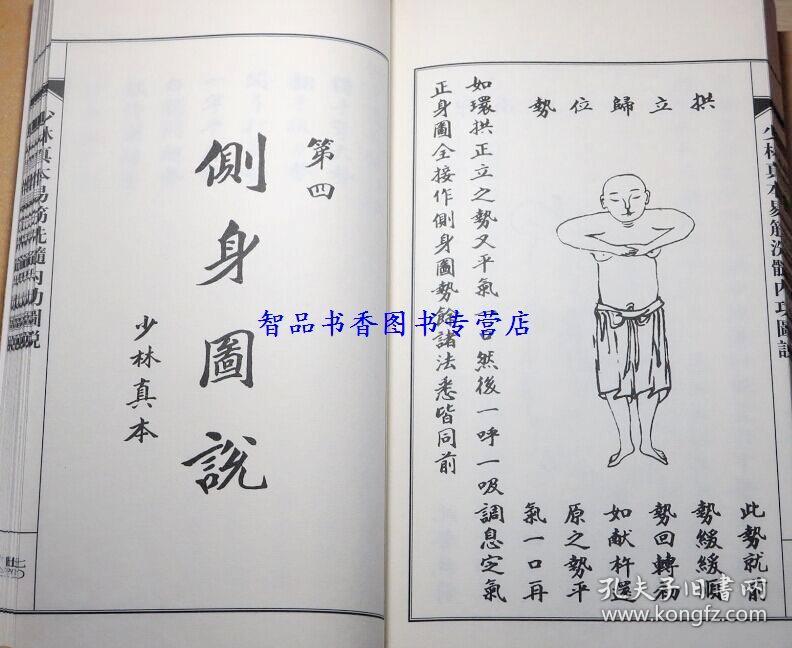 少林真本易筋洗髓內功圖說
拱立歸位勢
此勢就前
勢緩緩順
勢回轉初
如献杵還
原之勢平
氣一口再
如環拱正立之勢又平氣口然後一呼一吸調息定氣
正身圖全接作側身圖勢餘諸法悉皆同前
第四
側身圖說
少林真本
少林真本易筋洗髓內功圖說
智品书香图书专营店
孔夫子旧书网
www.kongfz.com